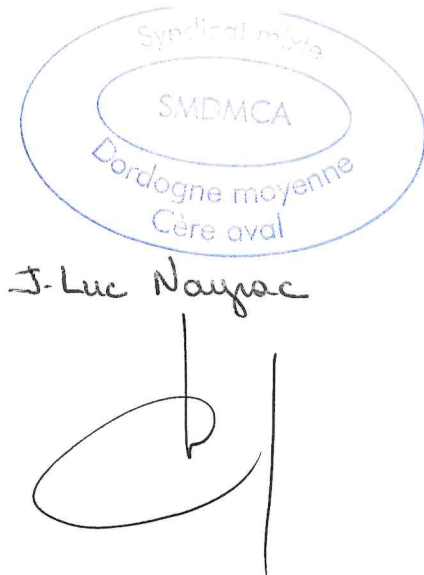 Syndicat mixte
SMDMCA
Dordogne moyenne
Cère aval
J-Luc Nayrac